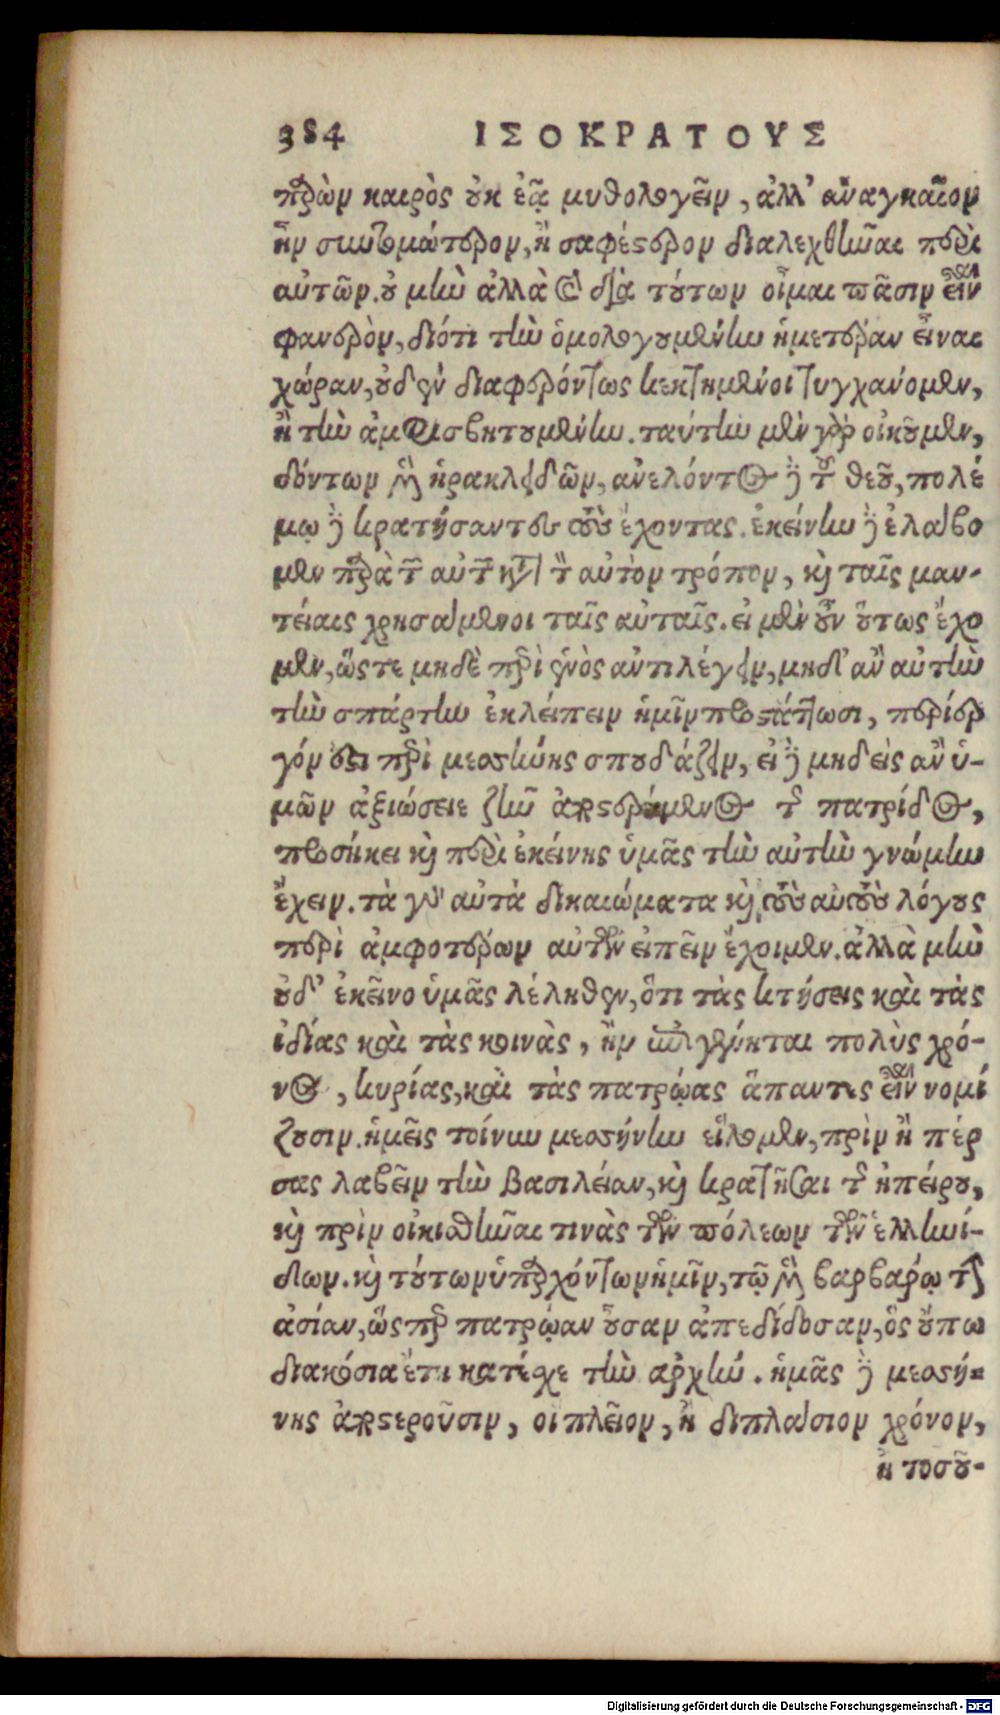 384 ΙΣΟΚΡΑΤΟΥΣ
παρὼν καιρὸς οὐκ ἐᾷ μυθολογεῖν, ἀλλ' ἀναγκαῖον
ἦν συντομώτερον, ἢ σαφέστερον διαλεχθῆναι περὶ
αὐτῶν. οὐ μὴν ἀλλὰ καὶ διὰ τούτων οἶμαι πᾶσιν εἶναι
φανερὸν, διότι τὴν ὁμολογουμένην ἡμετέραν εἶναι
χώραν, οὐδὲν διαφερόντως κεκτημένοι τυγχάνομεν,
ἢ τὴν ἀμφισβητουμένην. ταύτην μὲν γὰρ οἰκοῦμεν,
δόντων μὲν ἡρακλειδῶν, ἀνελόντος δὲ τοῦ θεοῦ, πολέ
μῳ δὲ κρατήσαντες τοὺς ἔχοντας. ἐκείνην δὲ ἐλάβο
μεν παρὰ τῶν αὐτῶν κατὰ τὸν αὐτὸν τρόπον, καὶ ταῖς μαν-
τείαις χρησάμενοι ταῖς αὐταῖς. εἰ μὲν οὖν οὕτως ἔχο
μεν, ὥστε μηδὲ περὶ ἑνὸς ἀντιλέγειν, μηδ' ἂν αὐτὴν
τὴν σπάρτην ἐκλείπειν ἡμῖν προστάττωσι, περίερ
γόν ἐστι περὶ μεσσήνης σπουδάζειν, εἰ δὲ μηδεὶς ἂν ὑ-
μῶν ἀξιώσειε ζῆν ἀποστερούμενος τῆς πατρίδος,
προσήκει καὶ περὶ ἐκείνης ὑμᾶς τὴν αὐτὴν γνώμην
ἔχειν. τὰ γὰρ αὐτὰ δικαιώματα καὶ τοὺς αὐτοὺς λόγους
περὶ ἀμφοτέρων αὐτῶν εἰπεῖν ἔχοιμεν. ἀλλὰ μὴν
οὐδ' ἐκεῖνο ὑμᾶς λέληθεν, ὅτι τὰς κτήσεις καὶ τὰς
ἰδίας καὶ τὰς κοινὰς, ἢν ἐπιγένηται πολὺς χρό-
νος, κυρίας, καὶ τὰς πατρῴας ἅπαντες εἶναι νομί
ζουσιν. ἡμεῖς τοίνυν μεσσήνην εἵλομεν, πρὶν ἢ πέρ
σας λαβεῖν τὴν βασιλείαν, καὶ κρατῆσαι τῆς ἠπείρου,
καὶ πρὶν οἰκισθῆναι τινὰς τῶν πόλεων τῶν ἑλληνί-
δων. καὶ τούτων ὑπαρχόντων ἡμῖν, τῷ μὲν βαρβάρῳ τὴν
ἀσίαν, ὡς περ πατρῴαν οὖσαν ἀπεδίδοσαν, ὃς οὔπω
διακόσια ἔτη κατέσχε τὴν ἀρχήν. ἡμᾶς δὲ μεσσή-
νης ἀποστεροῦσιν, οἳ πλεῖον, ἢ διπλάσιον χρόνον,
ἢ τοσοῦ-
Digitalisierung gefördert durch die Deutsche Forschungsgemeinschaft - DFG